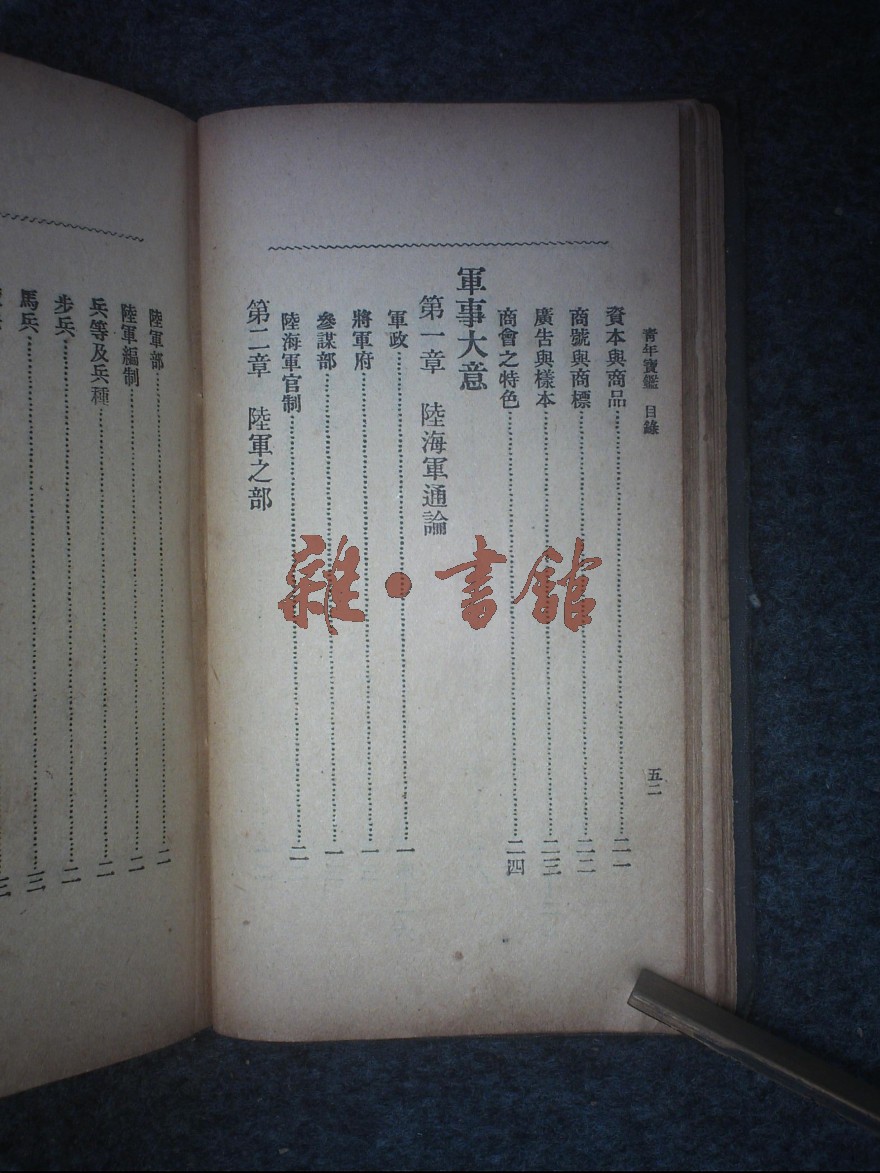 青年寶鑑 目錄 五二
資本與商品 二一
商號與商標 二二
廣告與樣本 二三
商會之特色 二四
軍事大意
第一章 陸海軍通論
軍政 一
將軍府 一
參謀部 一
陸海軍官制 二
第二章 陸軍之部
陸軍部 二
陸軍編制 二
兵等及兵種 二
步兵 二
馬兵 三
雜·書館